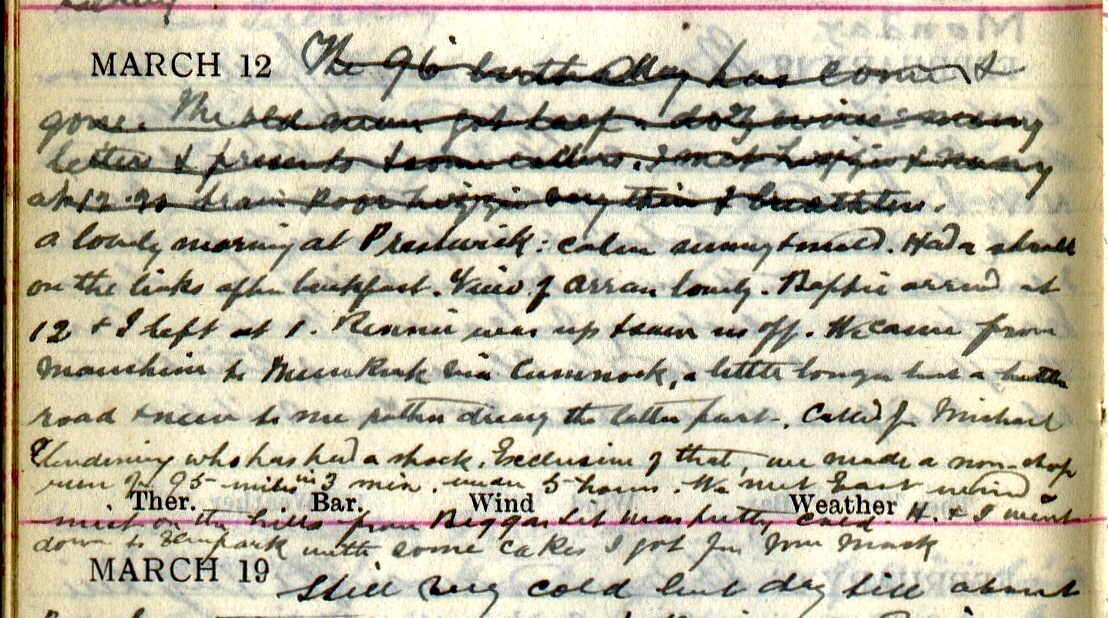 MARCH 12 The 96 birthday has come &
gone. The old man got doz wine many
letters & presents & some callers. I met & Nancy
at 12.20 train Poor very thin & breathless.
a lovely morning at Prestwick: calm sunny & mild. Had a stroll
on the links after breakfast. View of Arran lovely. Baffie arrived at
12 & I left at 1. Rennie was up & saw us off. We came from
Mauchline to Muirkirk via Cumnock, a little longer but a better
road & new to me rather dreary the latter part. Called for Michael
Glendinning who has had a shock. Exclusive of that, we made a non-stop
run for 95 miles in 3 min. under 5 hours. We met East wind &
Ther. Bar. Wind Weather
mist on the hills from Biggar but was pretty cold. H. & I went
down to with some cakes I got for
MARCH 19 Still very cold but dry till about